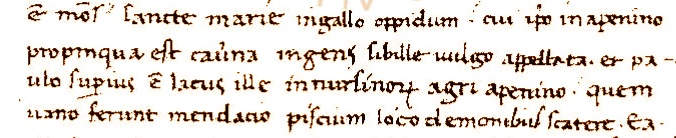 ē mōs sancte marie ingallo oppidum · cui ip̄o in apenino
propinqua est cau̇na ingens sibille uulgo appellata. et pa-
ulo suṗius ē lacus ille innursinoꝝ agri apenino · quem
uano ferunt mendacio piscium loco demonibus scatere. Ea